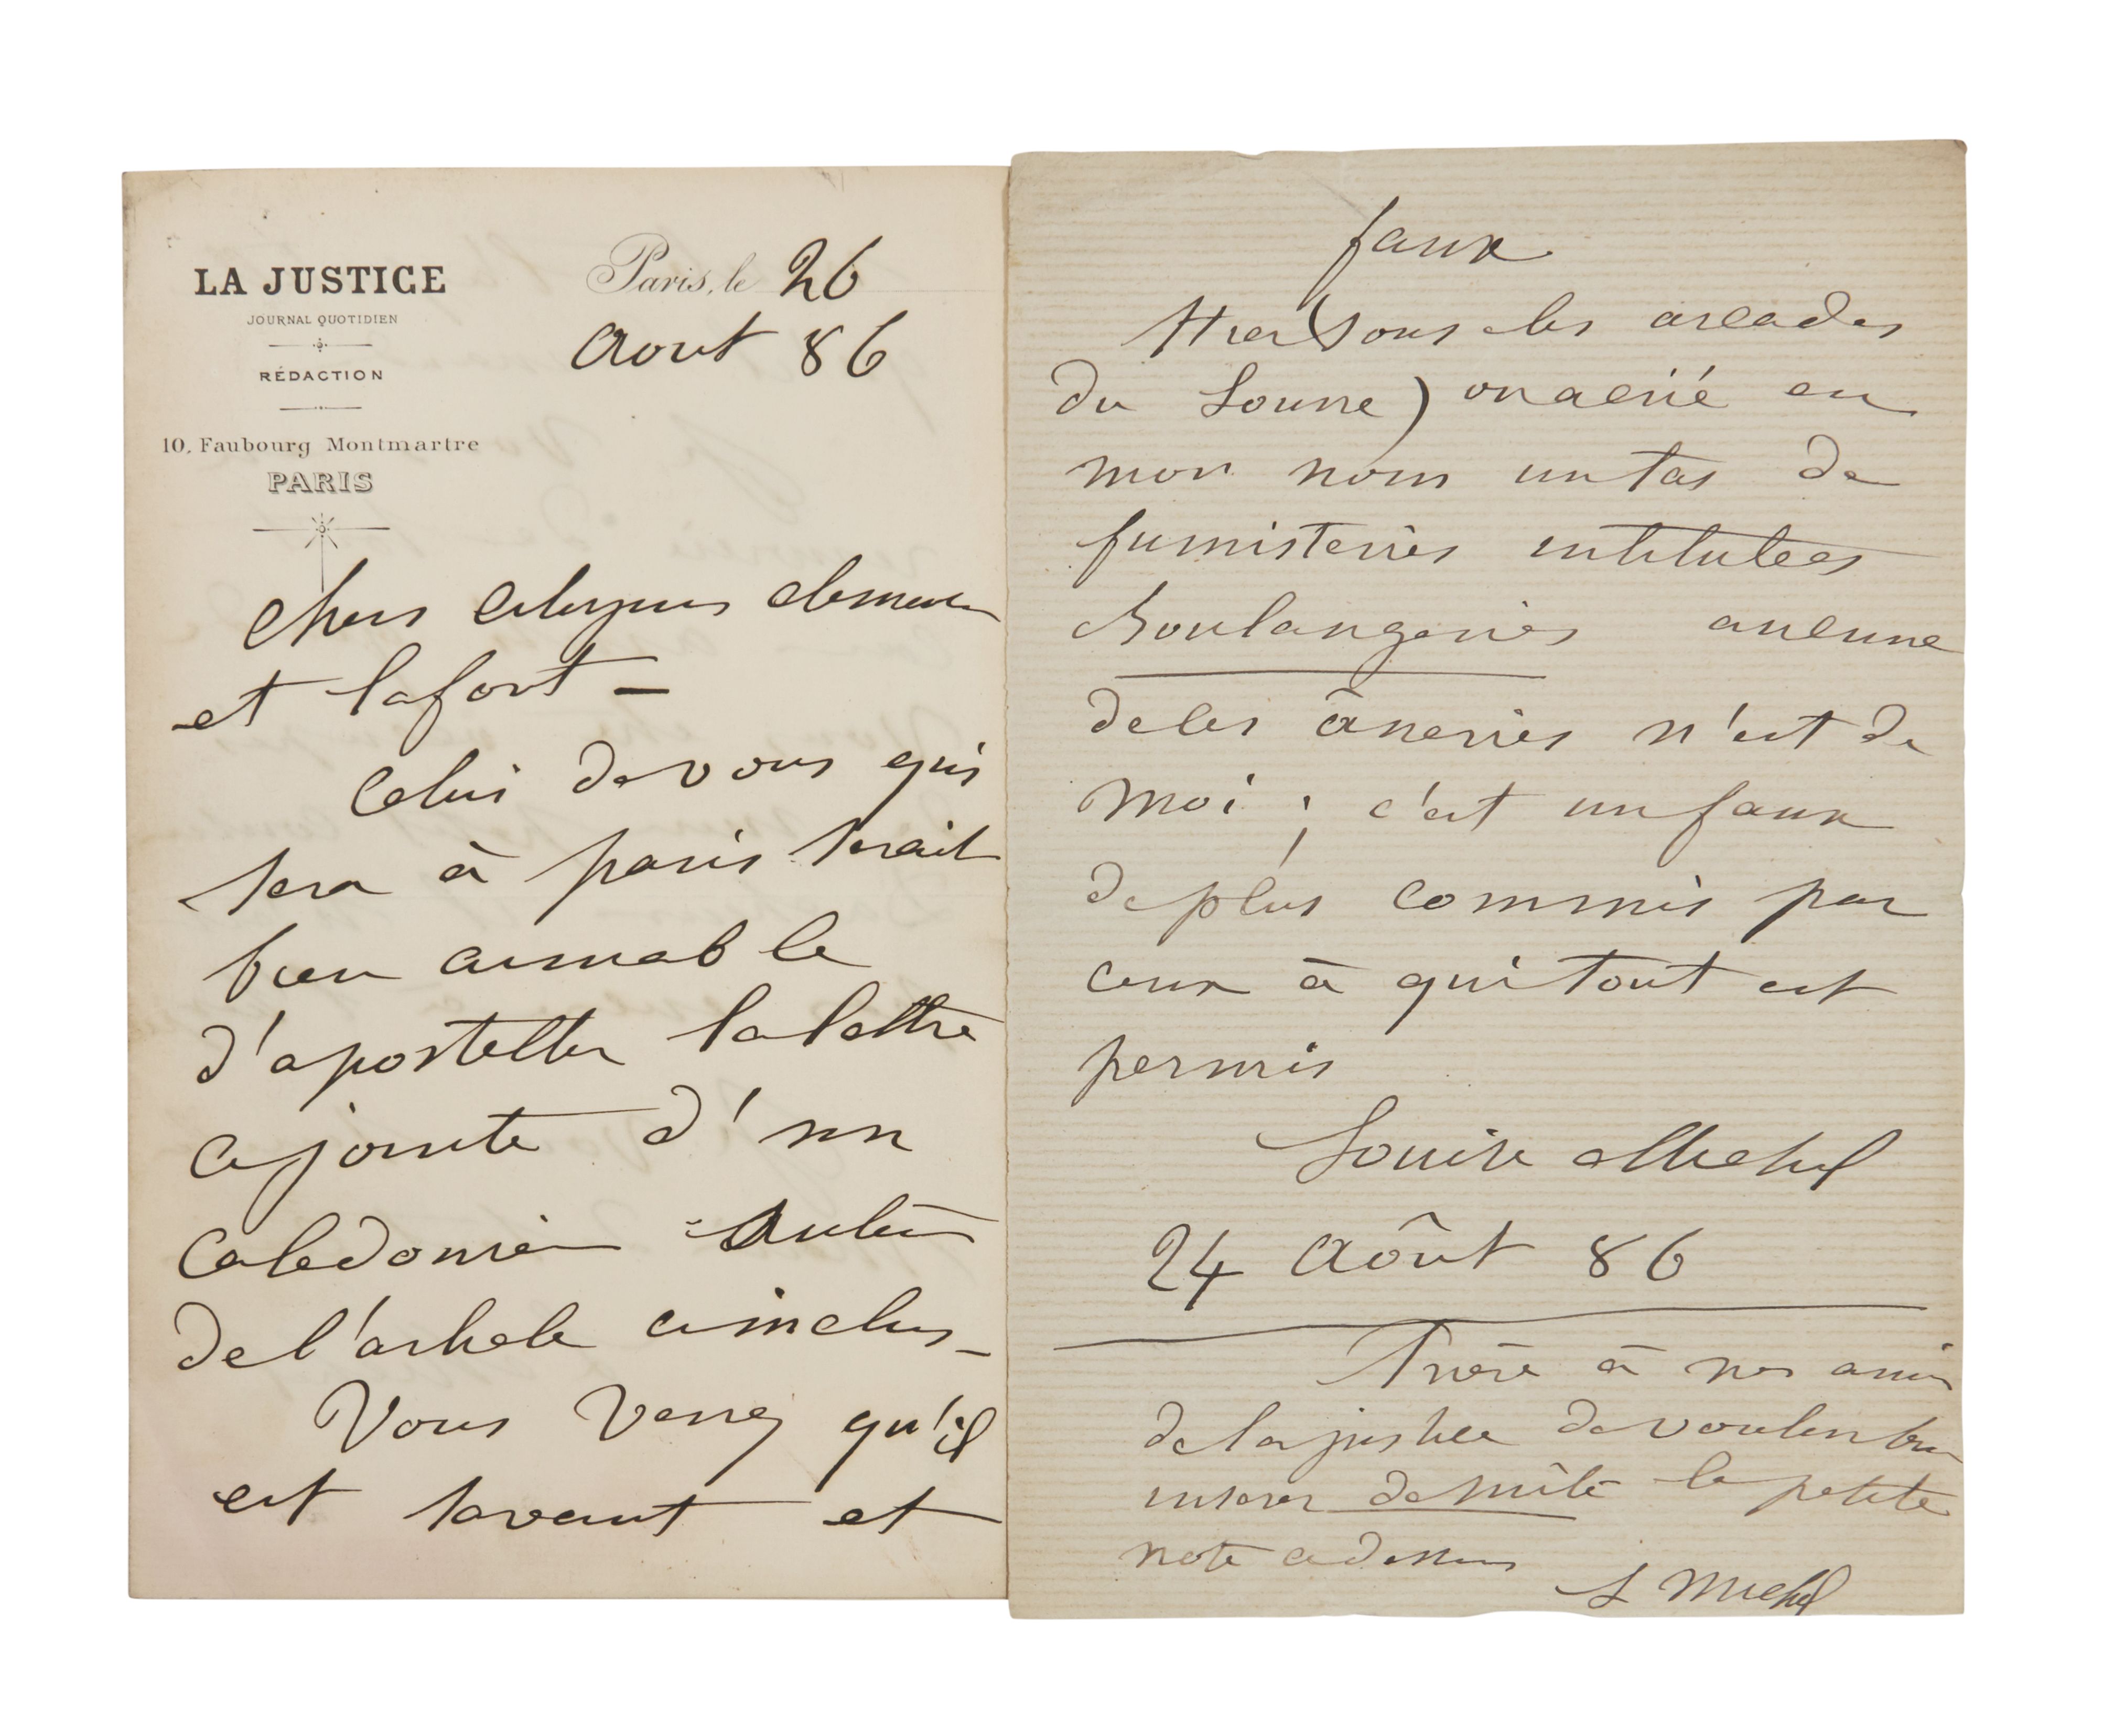 LA JUSTICE
JOURNAL QUOTIDIEN
RÉDACTION
10, Faubourg Montmartre
PARIS
Paris, le 26
aout 86
chers citoyens clemenceau
et lafont –
celui de vous qui
sera à paris serait
bien aimable
d'apostiller la lettre
ci jointe d'un
caledonien auteur
de l'article ci inclus –
Vous verrez qu'il
est savant et
faux
Hier (sous les arcades
du Louvre) on a crié en
mon nom un tas de
fumisteries intitulées
Boulangeries aucune
de ces âneries n'est de
moi ; c'est un faux
de plus commis par
ceux à qui tout est
permis
Louise Michel
24 Aôut 86
Prière à nos amis
de la justice de vouloir bien
inserer de suite la petite
note ci dessus
L Michel